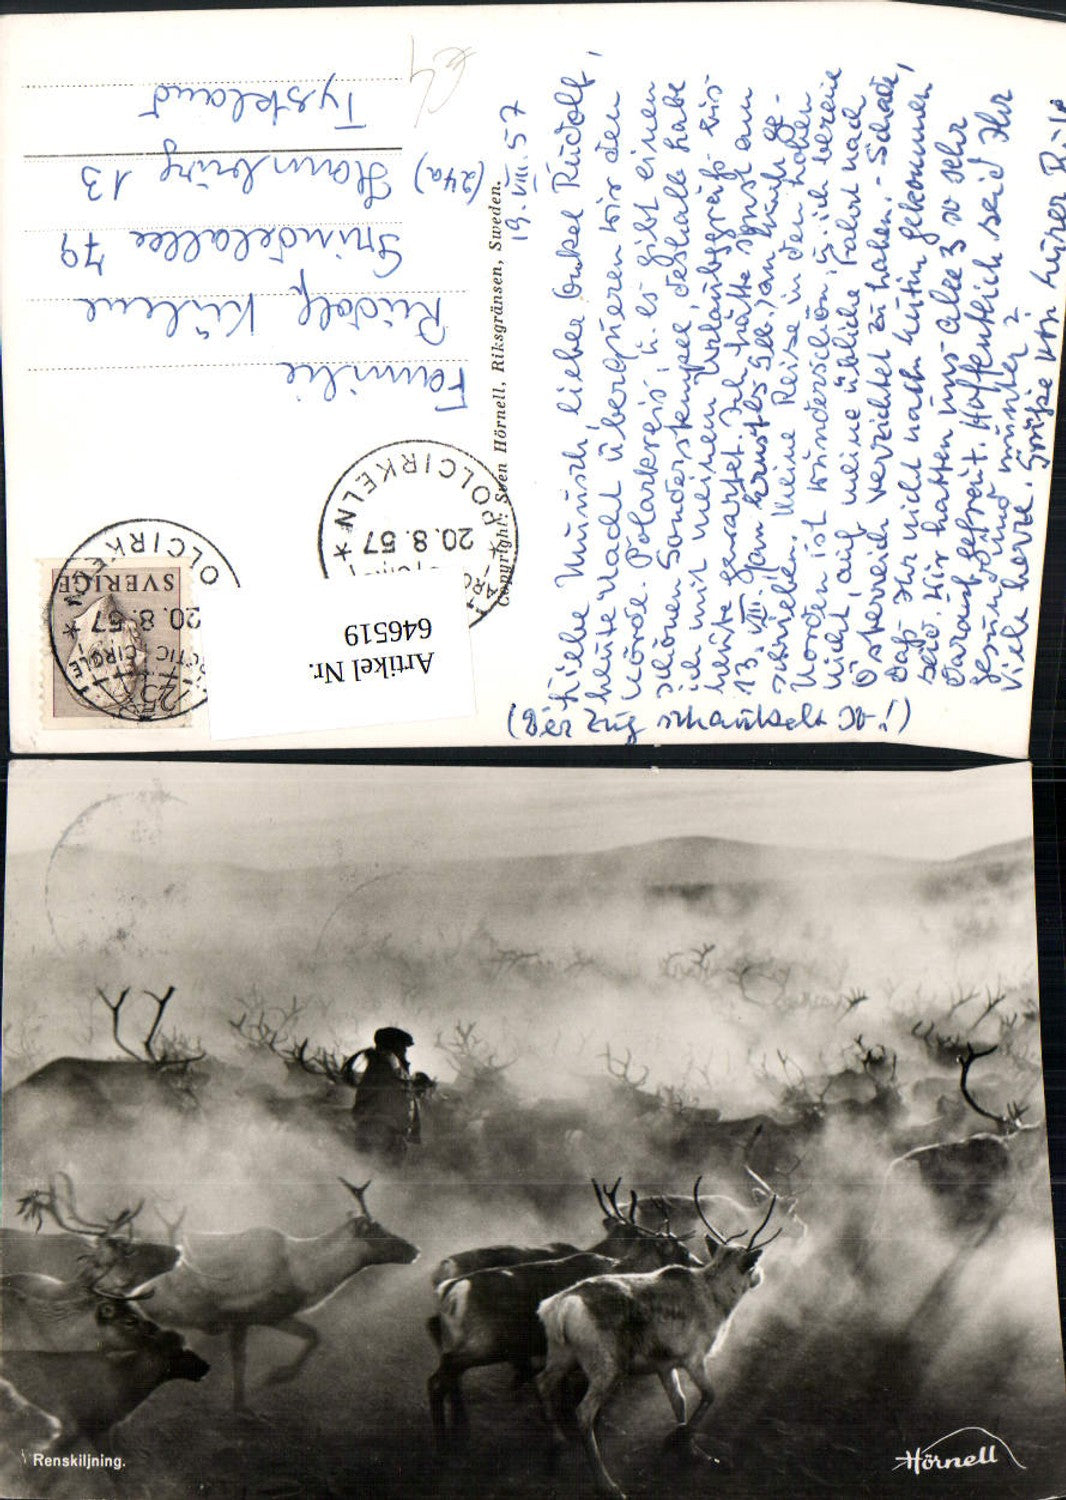 (24a)
19. VIII. 57
Liebe Munsch, lieber Onkel Rudolf,
heute Nacht überqueren wir den
nördl. Polarkreis, u. es gibt einen
schönen Sonderstempel, deshalb habe
ich mit meinem Urlaubsgruß bis
heute gewartet. Ich hätte sonst am
13. VIII. (an Geb.) an Euch ge-
schrieben. Meine Reise in den hohen
Norden ist wunderschön, u. ich bereue
nicht, auf meine übliche Fahrt nach
Österreich verzichtet zu haben. - Schade,
Daß Ihr nicht nach gekommen
seid. Wir hatten uns alle 3 so sehr
darauf gefreut. Hoffentlich seid Ihr
gesund und munter?
Viele herzl. Grüße von Eurer
(Der Zug schaukelt !)
Copyright: Sven Hörnell, Riksgränsen, Sweden.
Familie
Rudolf
79
Hamburg 13
Tyskland
POLCIRKELN
20.8.57
SVERIGE
25
POLCIRKE
20.8.57
ARCTIC CIRCLE
Artikel Nr.
646519
Renskiljning.
Hörnell